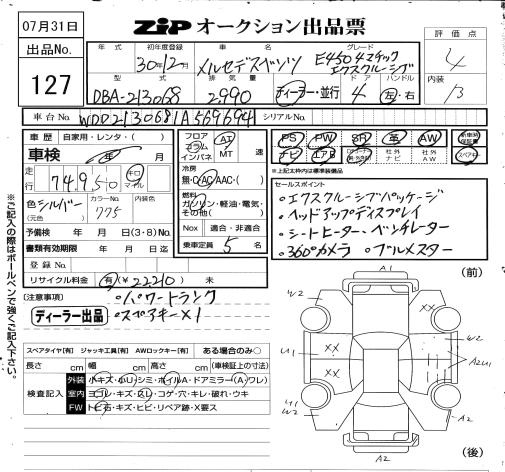 07月31日
ZIP オークション出品票
出品No.
127
評価点
4
内装
B
年式 初年度登録 車名 グレード
30年12月 メルセデスベンツ E450 4マチック
エクスクルーシブ
型式 排気量 ドア ハンドル
DBA-213068 2,990 ディーラー・並行 4 左・右
車台No. WDD2130681A569694 シリアルNo.
車歴 自家用・レンタ( )
車検 年 月
走行 74,950 キロ マイル
色 シルバー (元色) カラーNo. 775 内装色
予備検 年 月 日(3・8)No.
書類有効期限 年 月 日迄
登録No.
リサイクル料金 有(¥22210) 未
フロア コラム インパネ AT MT 速
冷房 無・AC・AAC・( )
燃料 ガソリン・軽油・電気・その他( )
Nox 適合・非適合
乗車定員 5 名
PS PW SR 革 AW 新車時保証書
ナビ エアB 社外ナビ 社外AW スペアキー
※上記太枠内は標準装備品
セールスポイント
・エクスクルーシブパッケージ
・ヘッドアップディスプレイ
・シートヒーター・ベンチレーター
・360°カメラ ・ブルメスター
※ご記入の際はボールペンで強くご記入下さい。
(注意事項)
・パワートランク
ディーラー出品
・スペアキー×1
スペアタイヤ[有] ジャッキ工具[有] AWロックキー[有] ある場合のみ○
長さ cm 幅 cm 高さ cm (車検証上の寸法)
検査記入
外装 小キズ・小U・シミ・ホイルA・ドアミラー(A・ワレ)
室内 ヨゴレ・キズ・スレ・コゲ・穴・キレ・破れ・ウキ
FW トビ石・キズ・ヒビ・リペア跡・X要ス
(前)
A1
W2
XX
U1
XX
XX
W2
A2U1
U1
W2
A2
A2
(後)